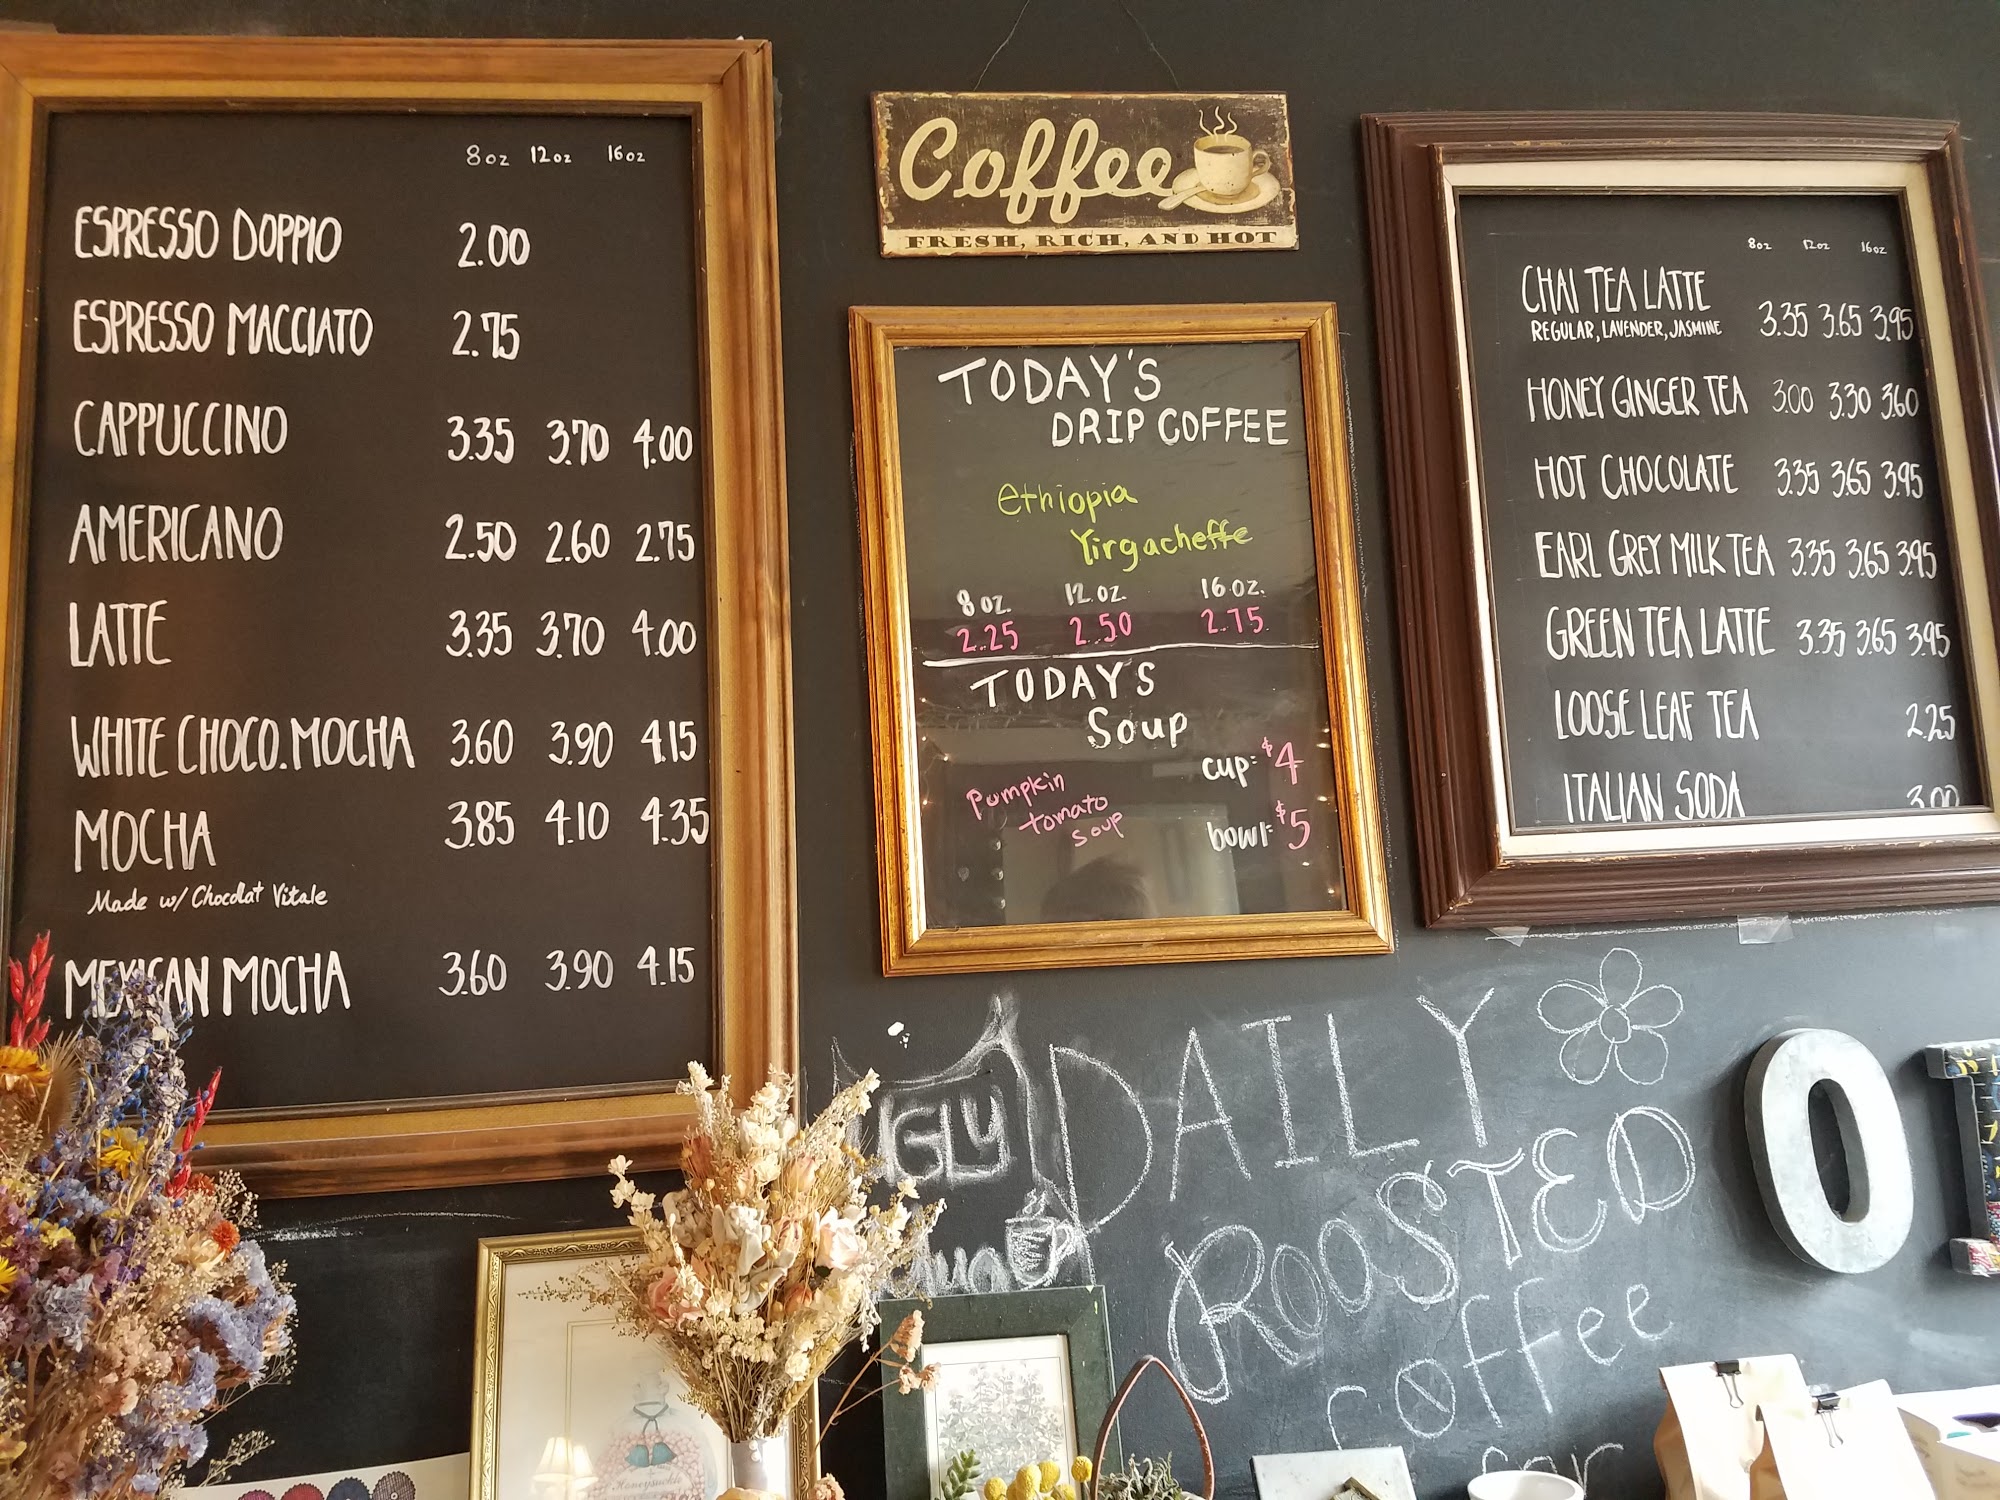 8oz 12oz 16oz
ESPRESSO DOPPIO 2.00
ESPRESSO MACCIATO 2.75
CAPPUCCINO 3.35 3.70 4.00
AMERICANO 2.50 2.60 2.75
LATTE 3.35 3.70 4.00
WHITE CHOCO. MOCHA 3.60 3.90 4.15
MOCHA 3.85 4.10 4.35
Made w/ Chocolat Vitale
MEXICAN MOCHA 3.60 3.90 4.15
Coffee
FRESH, RICH, AND HOT
TODAY'S
DRIP COFFEE
Ethiopia
Yirgacheffe
8oz. 12oz. 16oz.
2.25 2.50 2.75
TODAY'S
Soup
cup: $4
Pumpkin
tomato
soup
bowl: $5
8oz 12oz 16oz
CHAI TEA LATTE 3.35 3.65 3.95
REGULAR, LAVENDER, JASMINE
HONEY GINGER TEA 3.00 3.30 3.60
HOT CHOCOLATE 3.35 3.65 3.95
EARL GREY MILK TEA 3.35 3.65 3.95
GREEN TEA LATTE 3.35 3.65 3.95
LOOSE LEAF TEA 2.25
ITALIAN SODA 3.00
UGLY
mug
DAILY
ROOSTED
coffee
for
O
Honeysuckle